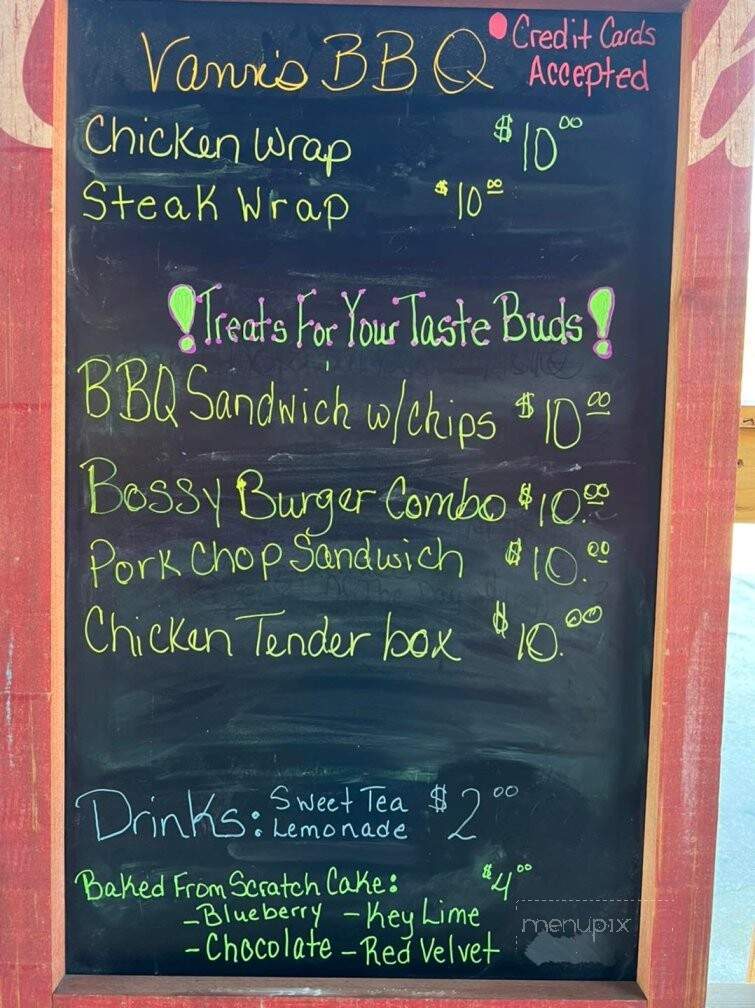 Vann's BBQ
Credit Cards
Accepted
Chicken Wrap $10.00
Steak Wrap $10.00
!Treats For Your Taste Buds!
BBQ Sandwich w/chips $10.00
Bossy Burger Combo $10.00
Pork Chop Sandwich $10.00
Chicken Tender box $10.00
Drinks: Sweet Tea $2.00
Lemonade
Baked From Scratch Cake: $4.00
-Blueberry -Key Lime
-Chocolate -Red Velvet
menupix